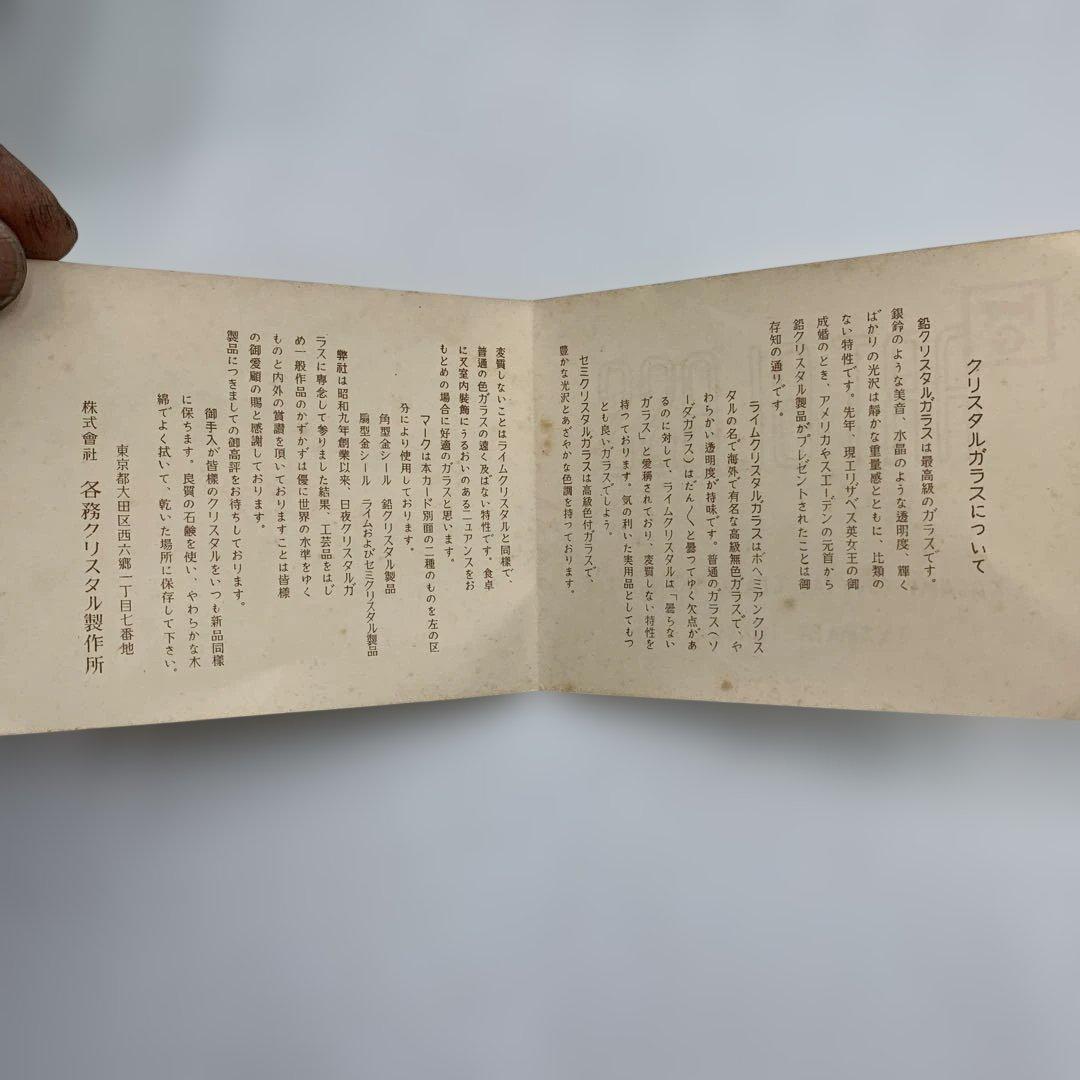 クリスタルガラスについて
鉛クリスタルガラスは最高級のガラスです。
銀鈴のような美音、水晶のような透明度、輝く
ばかりの光沢は靜かな重量感とともに、比類の
ない特性です。先年、現エリザベス英女王の御
成婚のとき、アメリカやスエーデンの元首から
鉛クリスタル製品がプレゼントされたことは御
存知の通りです。
ライムクリスタルガラスはボヘミアンクリス
タルの名で海外で有名な高級無色ガラスで、や
わらかい透明度が持味です。普通のガラス（ソ
ーダガラス）はだん〱と曇つてゆく欠点があ
るのに対して、ライムクリスタルは「曇らない
ガラス」と愛稱されており、変質しない特性を
持つております。気の利いた実用品としてもつ
とも良いガラスでしよう。
セミクリスタルガラスは高級色付ガラスで、
豊かな光沢とあざやかな色調を持つております。
変質しないことはライムクリスタルと同様で、
普通の色ガラスの遠く及ばない特性です。食卓
に又室内装飾にうるおいのある二ュアンスをお
もとめの場合に好適のガラスと思います。
マークは本カード別面の二種のものを左の区
分により使用しております。
角型金シール　鉛クリスタル製品
扇型金シール　ライムおよびセミクリスタル製品
弊社は昭和九年創業以来、日夜クリスタルガ
ラスに専念して参りました結果、工芸品をはじ
め一般作品のかずかずは優に世界の水準をゆく
ものと内外の賞讚を頂いておりますことは皆様
の御愛顧の賜と感謝しております。
製品につきましての御高評をお待ちしております。
御手入が皆様のクリスタルをいつも新品同様
に保ちます。良質の石鹸を使い、やわらかな木
綿でよく拭いて、乾いた場所に保存して下さい。
東京都大田区西六郷一丁目七番地
株式會社　各務クリスタル製作所